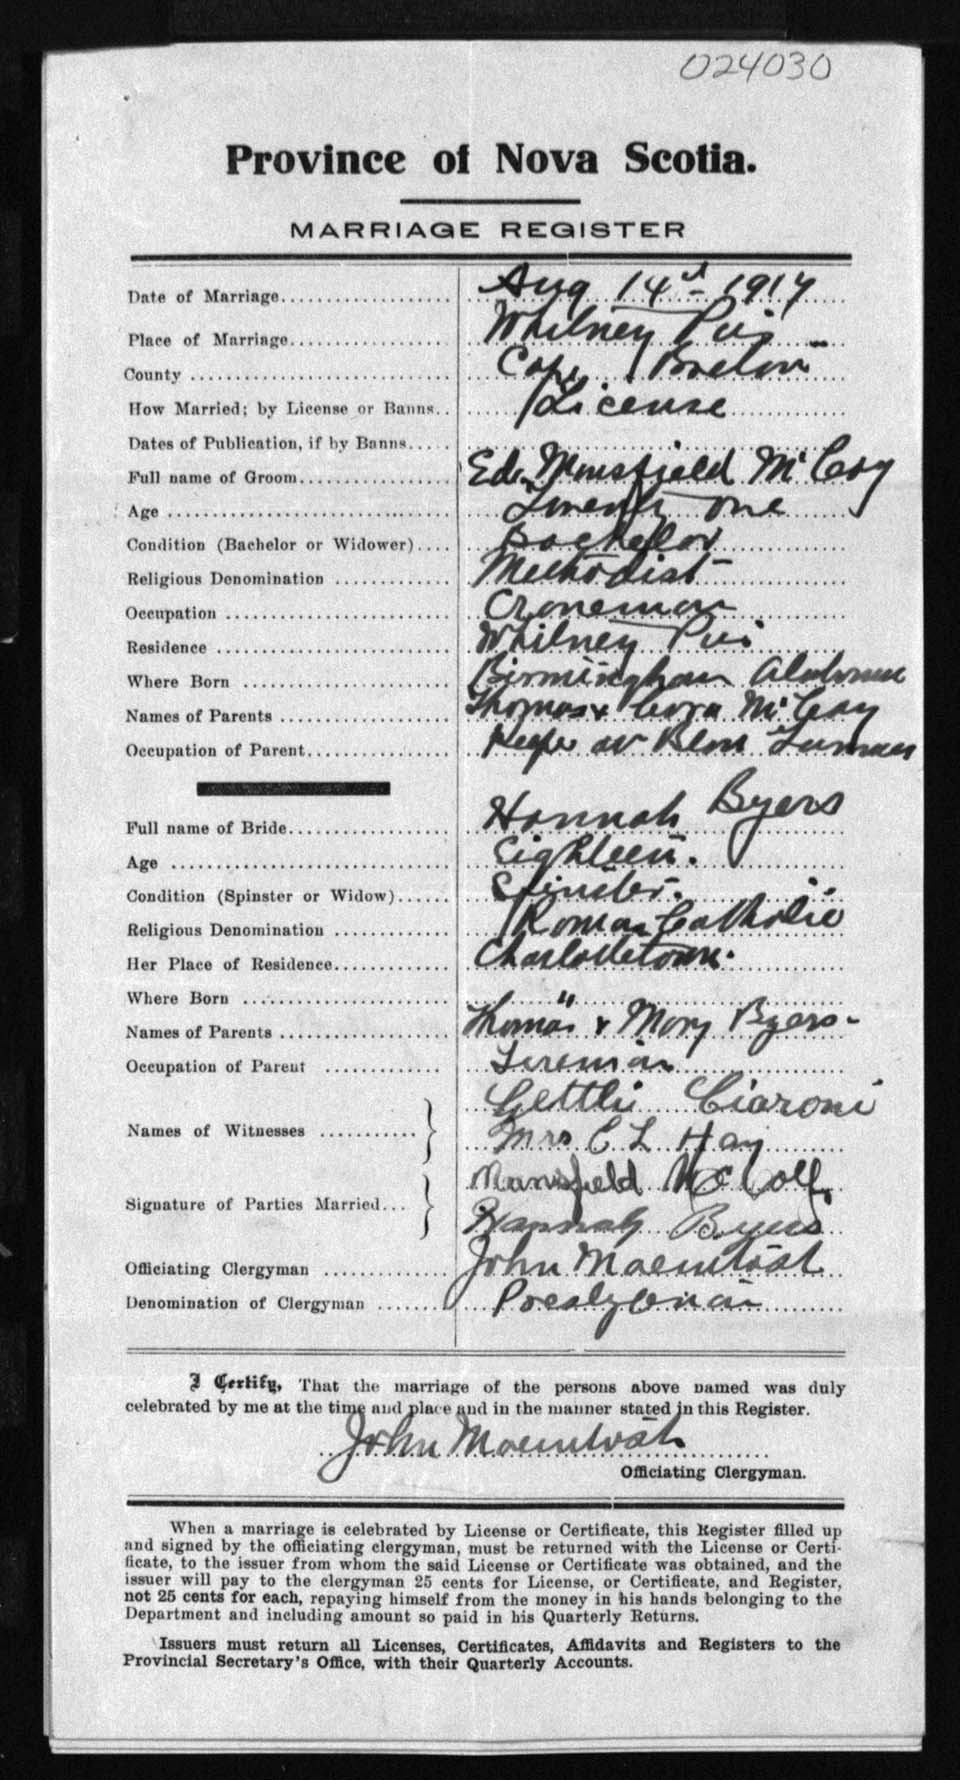 024030
Province of Nova Scotia.
MARRIAGE REGISTER
Date of Marriage Aug 14th 1917
Place of Marriage Whitney Pier
County Cape Breton
How Married; by License or Banns License
Dates of Publication, if by Banns
Full name of Groom Ed. Mansfield McCoy
Age Twenty one
Condition (Bachelor or Widower) Bachelor
Religious Denomination Methodist
Occupation Craneman
Residence Whitney Pier
Where Born Birmingham Alabama
Names of Parents Thomas & Cora McCoy
Occupation of Parent Keeper
Full name of Bride Hannah Byers
Age Eighteen.
Condition (Spinster or Widow) Spinster.
Religious Denomination Roman Catholic
Her Place of Residence Charlottetown.
Where Born "
Names of Parents Thomas & Mary Byers
Occupation of Parent Fireman
Names of Witnesses
Mrs C L Hay
Signature of Parties Married Mansfield McCoy
Hannah Byers
Officiating Clergyman John Macintosh
Denomination of Clergyman Presbyterian
I Certify, That the marriage of the persons above named was duly
celebrated by me at the time and place and in the manner stated in this Register.
John Macintosh
Officiating Clergyman.
When a marriage is celebrated by License or Certificate, this Register filled up
and signed by the officiating clergyman, must be returned with the License or Certi-
ficate, to the issuer from whom the said License or Certificate was obtained, and the
issuer will pay to the clergyman 25 cents for License, or Certificate, and Register,
not 25 cents for each, repaying himself from the money in his hands belonging to the
Department and including amount so paid in his Quarterly Returns.
Issuers must return all Licenses, Certificates, Affidavits and Registers to the
Provincial Secretary's Office, with their Quarterly Accounts.